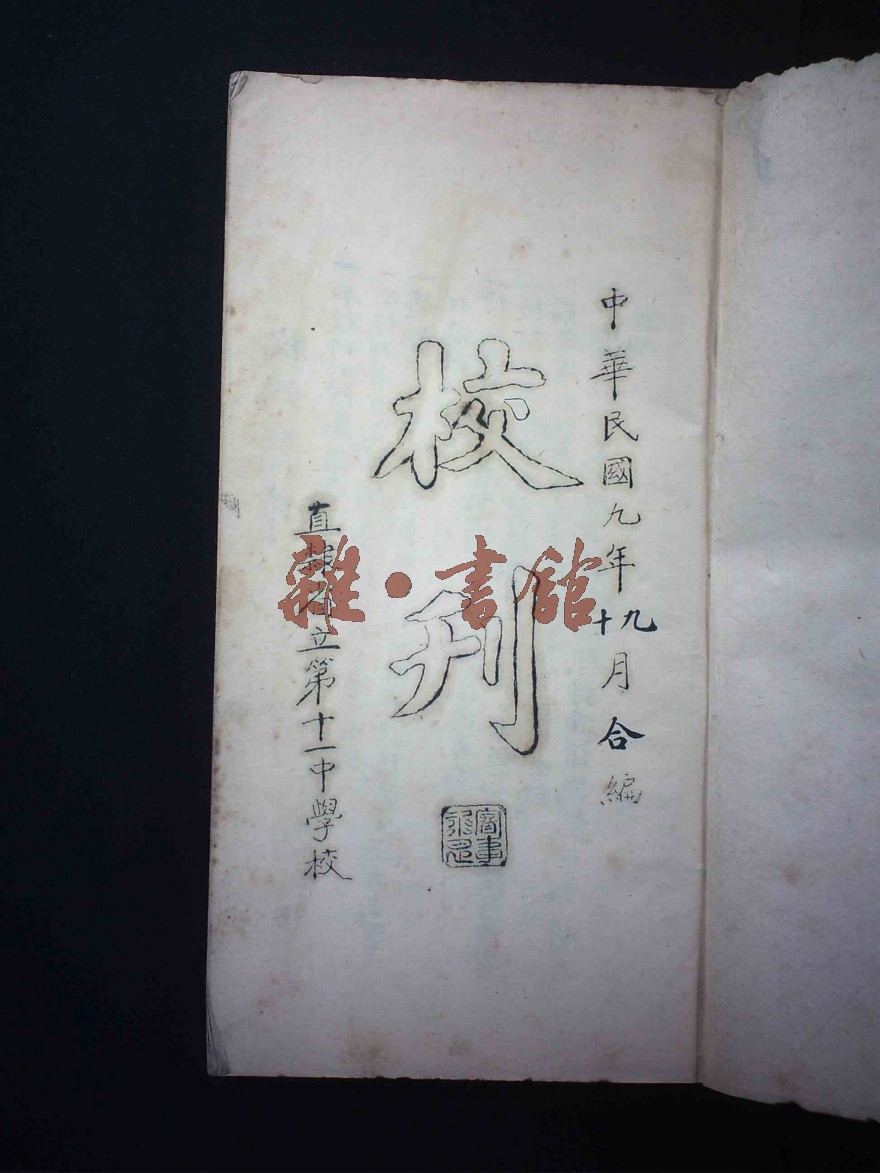 中華民國九年九十月合編
校刊
直隸省立第十一中學校
雜·書館